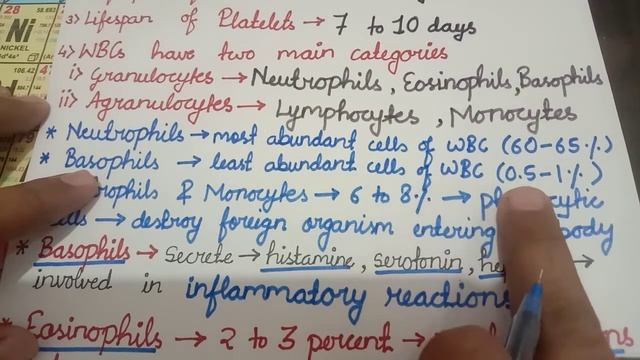 28
58.693
Ni
NICKEL
106.42
3) Lifespan of Platelets → 7 to 10 days
4) WBCs have two main categories
i) Granulocytes → Neutrophils, Eosinophils, Basophils
ii) Agranulocytes → Lymphocytes, Monocytes
* Neutrophils → most abundant cells of WBC (60-65%)
* Basophils → least abundant cells of WBC (0.5-1%)
& Monocytes → 6 to 8% →
→ destroy foreign organism entering body
* Basophils → Secrete → histamine, serotonin, →
involved in inflammatory reactions
* Eosinophils → 2 to 3 percent →